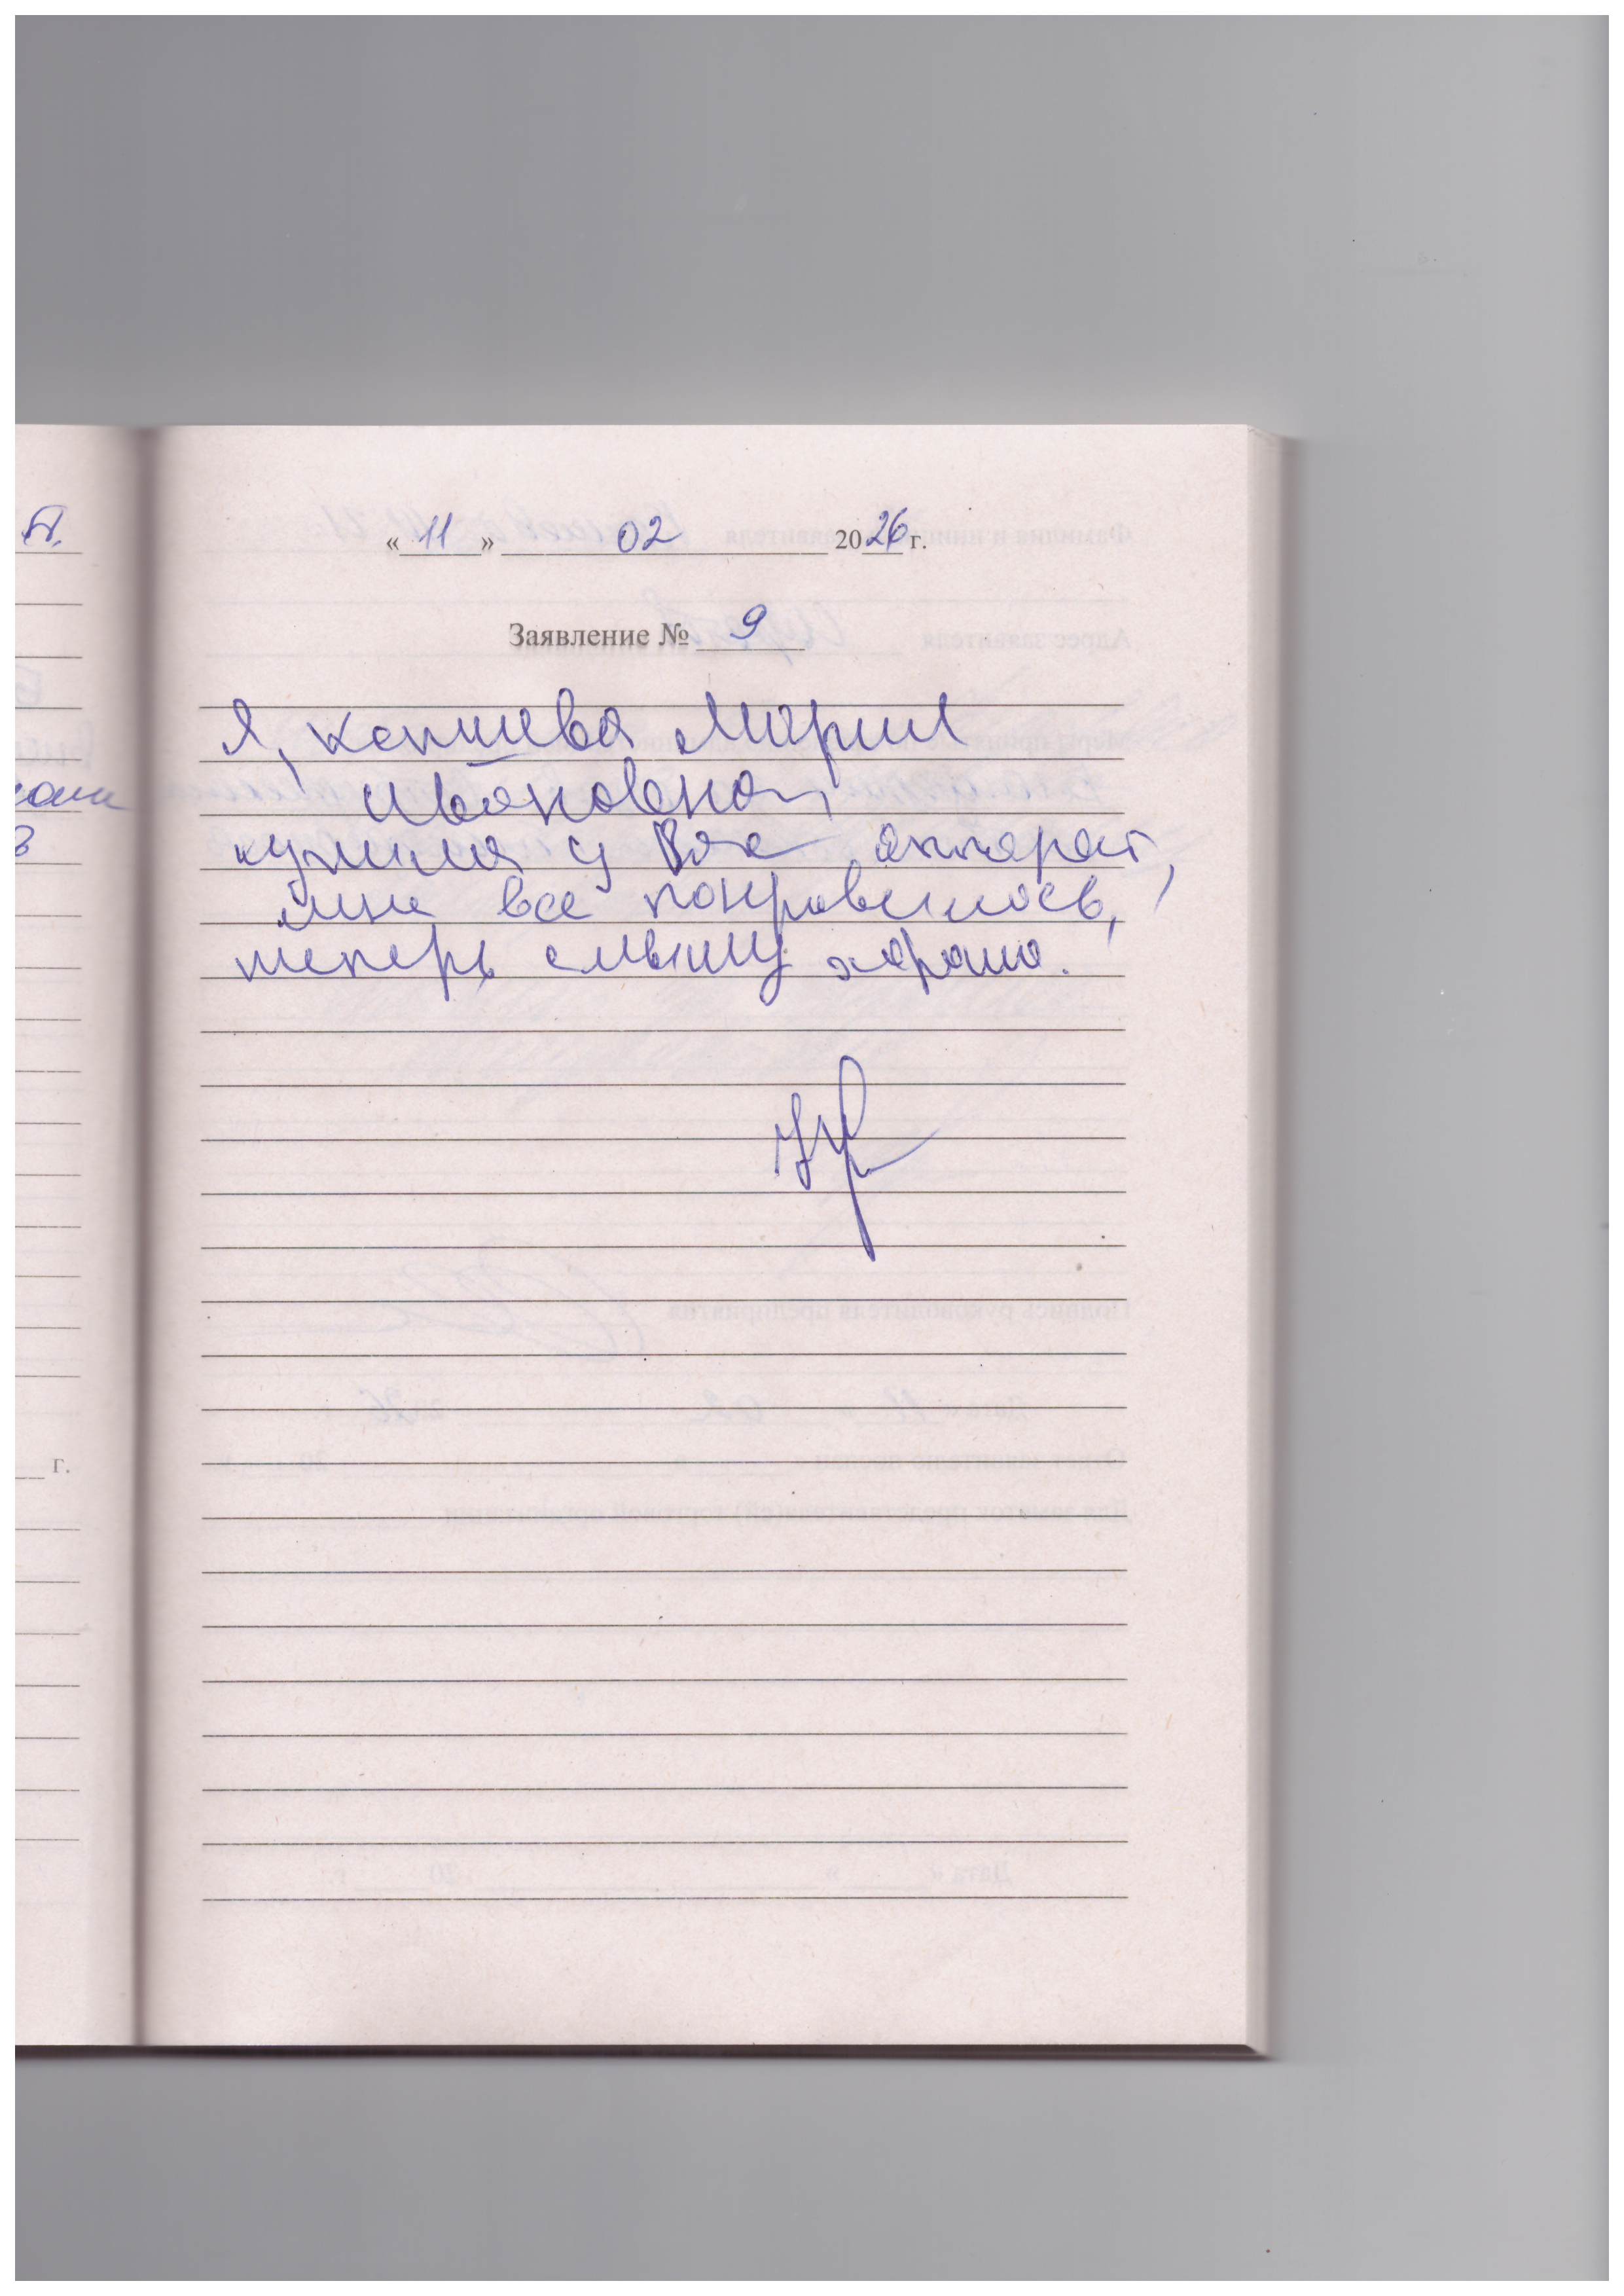 А.
« 11 » 02 2026 г.
Заявление № 9
Я, Мария
Ивановна,
купила у Вас аппарат,
мне все понравилось,
теперь слышу хорошо.
г.